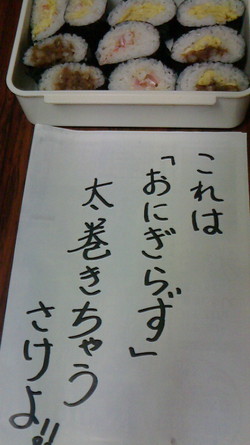 これは
「おにぎらず」
太巻きちゃう
さけよ!!